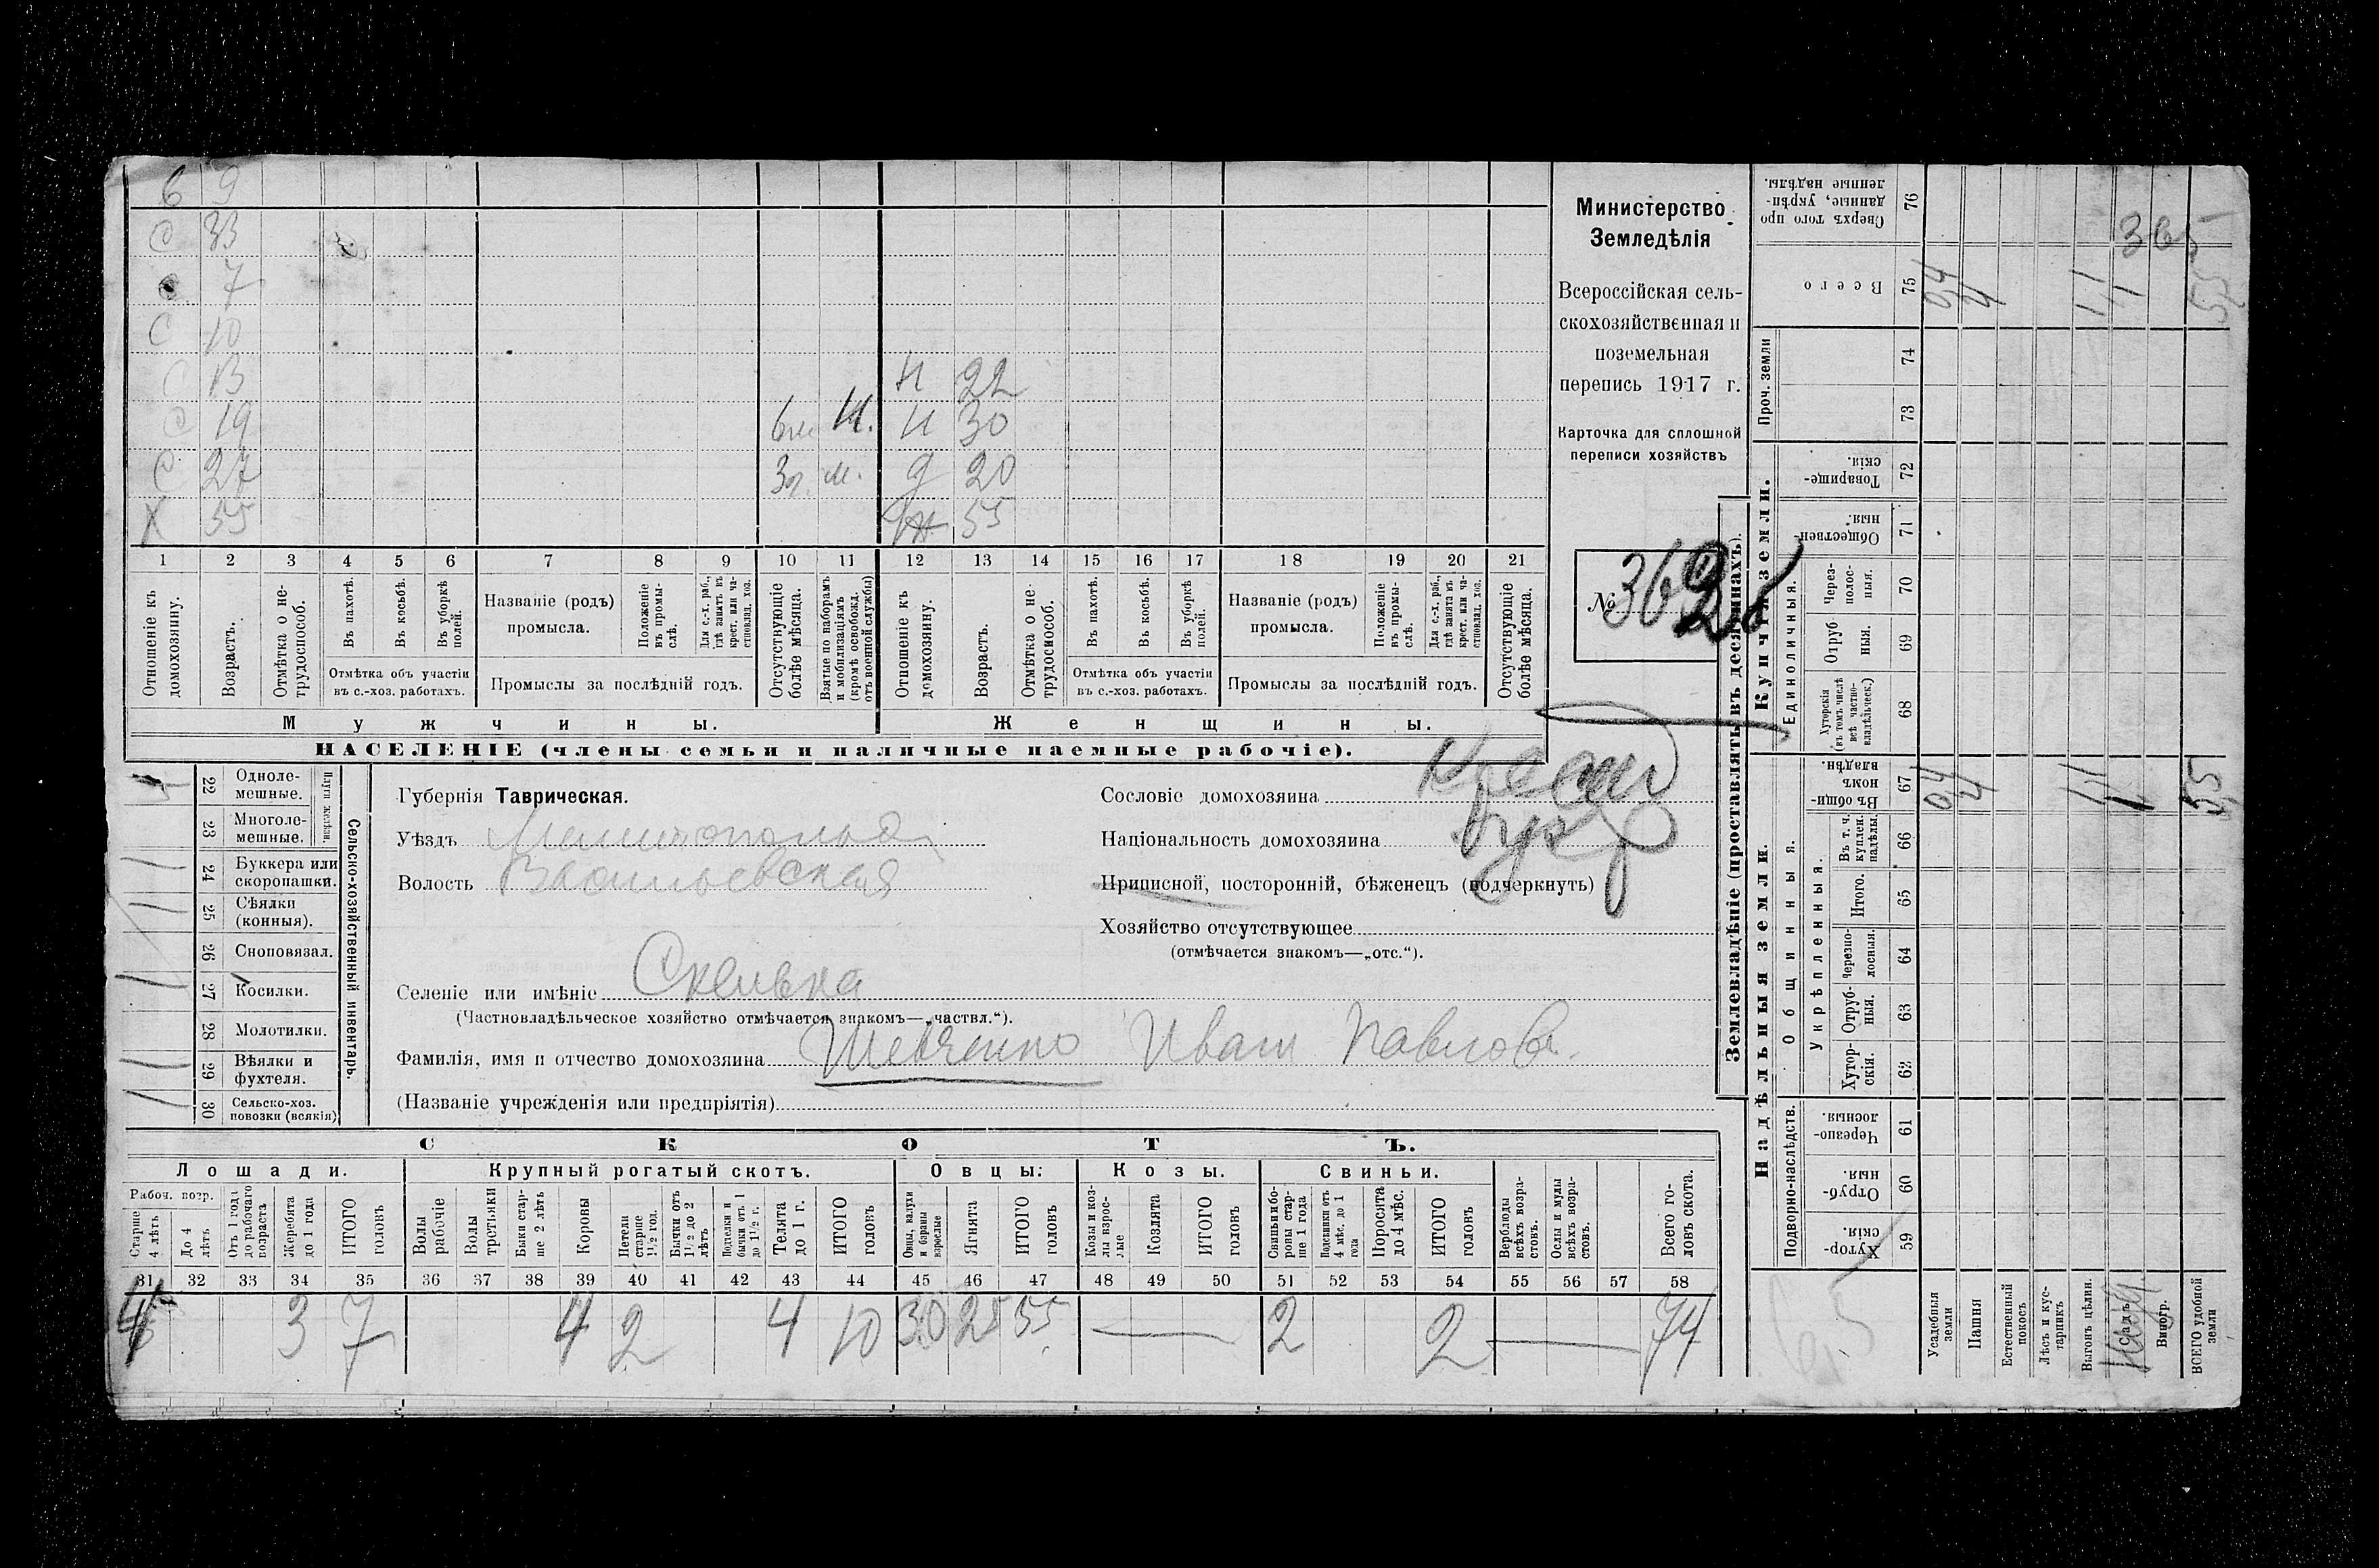 Министерство
Земледѣлія
Всероссійская сель-
скохозяйственная и
поземельная
перепись 1917 г.
Карточка для сплошной
переписи хозяйствъ
№ 362
6 9
С 33
7
С 10
С 13 Н 22
С 19 6м. М. Н 30
С 27 3г. м. Д 20
Х 55 Ж 55
1 2 3 4 5 6 7 8 9 10 11 12 13 14 15 16 17 18 19 20 21
Отношеніе къ домохозяину.
Возрастъ.
Отмѣтка о не-трудоспособ.
Въ пахотѣ.
Въ косьбѣ.
Въ уборкѣ полей.
Отмѣтка объ участіи
въ с.-хоз. работахъ.
Названіе (родъ)
промысла.
Положеніе въ промы-слѣ.
Для с.-х. раб., гдѣ занятъ въ крест. или ча-стновлад. хоз.
Промыслы за послѣдній годъ.
Отсутствующіе болѣе мѣсяца.
Взятые по наборамъ и мобилизаціямъ (кромѣ освобожд. отъ военной службы)
Отношеніе къ домохозяину.
Возрастъ.
Отмѣтка о не-трудоспособ.
Въ пахотѣ.
Въ косьбѣ.
Въ уборкѣ полей.
Отмѣтка объ участіи
въ с.-хоз. работахъ.
Названіе (родъ)
промысла.
Положеніе въ промы-слѣ.
Для с.-х. раб., гдѣ занята въ крест. или ча-стновлад. хоз.
Промыслы за послѣдній годъ.
Отсутствующіе болѣе мѣсяца.
Мужчины.
Женщины.
НАСЕЛЕНІЕ (члены семьи и наличные наемные рабочіе).
22 Одноле-мешные.
23 Многоле-мешные.
24 Буккера или скоропашки.
25 Сѣялки (конныя).
26 Сноповязал.
27 Косилки.
28 Молотилки.
29 Вѣялки и фухтеля.
30 Сельско-хоз. повозки (всякія)
Сельско-хозяйственный инвентарь.
Губернія Таврическая.
Уѣздъ Мелитопольск
Волость Васильевская
Сословіе домохозяина Крест
Національность домохозяина Укр
Приписной, посторонній, бѣженецъ (подчеркнуть)
Хозяйство отсутствующее
(отмѣчается знакомъ—„отс.“).
Селеніе или имѣніе Скелька
(Частновладѣльческое хозяйство отмѣчается знакомъ—„частвл.“).
Фамилія, имя и отчество домохозяина Шевченко Иван Павлов.
(Названіе учрежденія или предпріятія)
СКОТЪ.
Лошади. Крупный рогатый скотъ. Овцы. Козы. Свиньи.
Рабоч. возр.
Старше 4 лѣтъ
До 4 лѣтъ
Отъ 1 года до рабочаго возраста
Жеребята до 1 года
ИТОГО головъ
Волы рабочіе
Волы третьяки
Быки стар-ше 2 лѣтъ
Коровы
Петели старше 1½ год.
Бычки отъ 1½ до 2 лѣтъ
Подтелки и бычки отъ 1 до 1½ г.
Телята до 1 г.
ИТОГО головъ
Овцы, валухи и бараны взрослые
Ягнята
ИТОГО головъ
Козы и коз-лы взрос-лые
Козлята
ИТОГО головъ
Свиньи бо-ровы стар-ше 1 года
Подсвинки отъ 4 мѣс. до 1 года
Поросята до 4 мѣс.
ИТОГО головъ
Верблюды всѣхъ возра-стовъ.
Ослы и мулы всѣхъ возра-стовъ.
Всего го-ловъ скота.
31 32 33 34 35 36 37 38 39 40 41 42 43 44 45 46 47 48 49 50 51 52 53 54 55 56 57 58
4 3 7 4 2 4 10 30 25 55 — 2 2 — 74
Землевладѣніе (проставлять въ десятинахъ).
Купчія земли.
Надѣльныя земли.
Сверхъ того про-данные, укрѣп-ленные надѣлы. 76
Всего 75
Проч. земли 74 73
Товарище-скія. 72
Обществен-ныя. 71
Единоличныя.
Через-полос-ныя. 70
Отруб-ныя. 69
Хуторскія (въ томъ числѣ всѣ частно-владѣльческ.) 68
Въ общин-номъ владѣн. 67
Общинныя.
Укрѣпленныя.
Въ т. ч. куплен. надѣлы. 66
Итого. 65
Черезпо-лосныя. 64
Отруб-ныя. 63
Хутор-скія. 62
Подворно-наслѣдств.
Черезпо-лосныя. 61
Отруб-ныя. 60
Хутор-скія. 59
Усадебныя земли
Пашня
Естественный покосъ
Лѣсъ и кус-тарникъ
Выгонъ цѣлин.
Садъ
Виногр.
ВСЕГО удобной земли
04 4 11 55
04 4 11 55
365